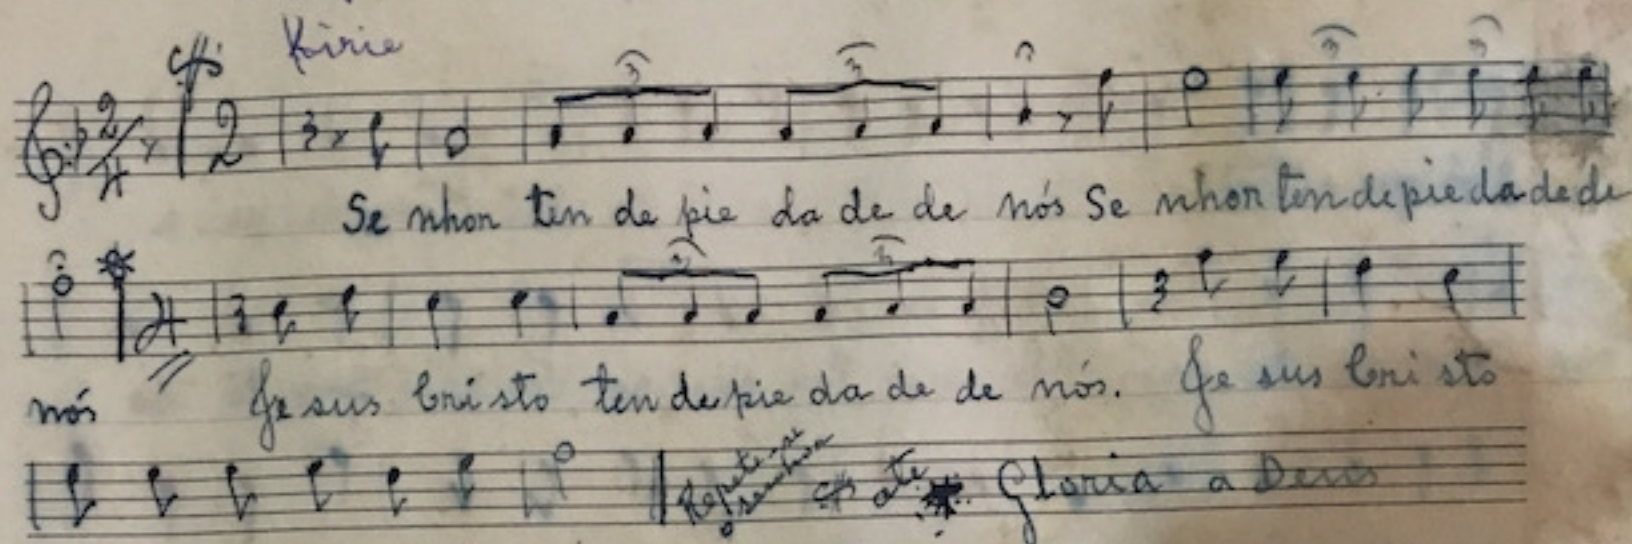 Kirie
2/4 2
3 3 3 3
Se nhor ten de pie da de de nós Se nhor ten de pie da de de
4 3 3
nós Je sus Cri sto ten de pie da de de nós. Je sus Cri sto
Repete-se o senhor até Gloria a Deus